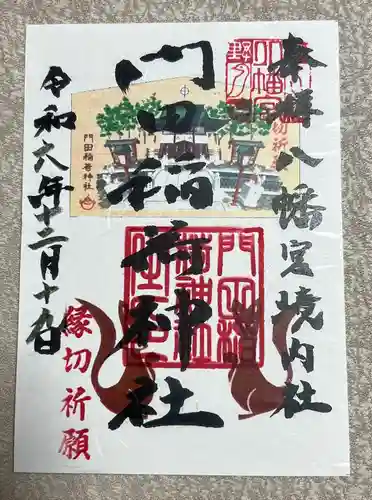 奉拝 八幡宮境内社
門田稲荷神社
令和六年十二月十九日
縁切祈願
門田稲荷神社
縁切祈願